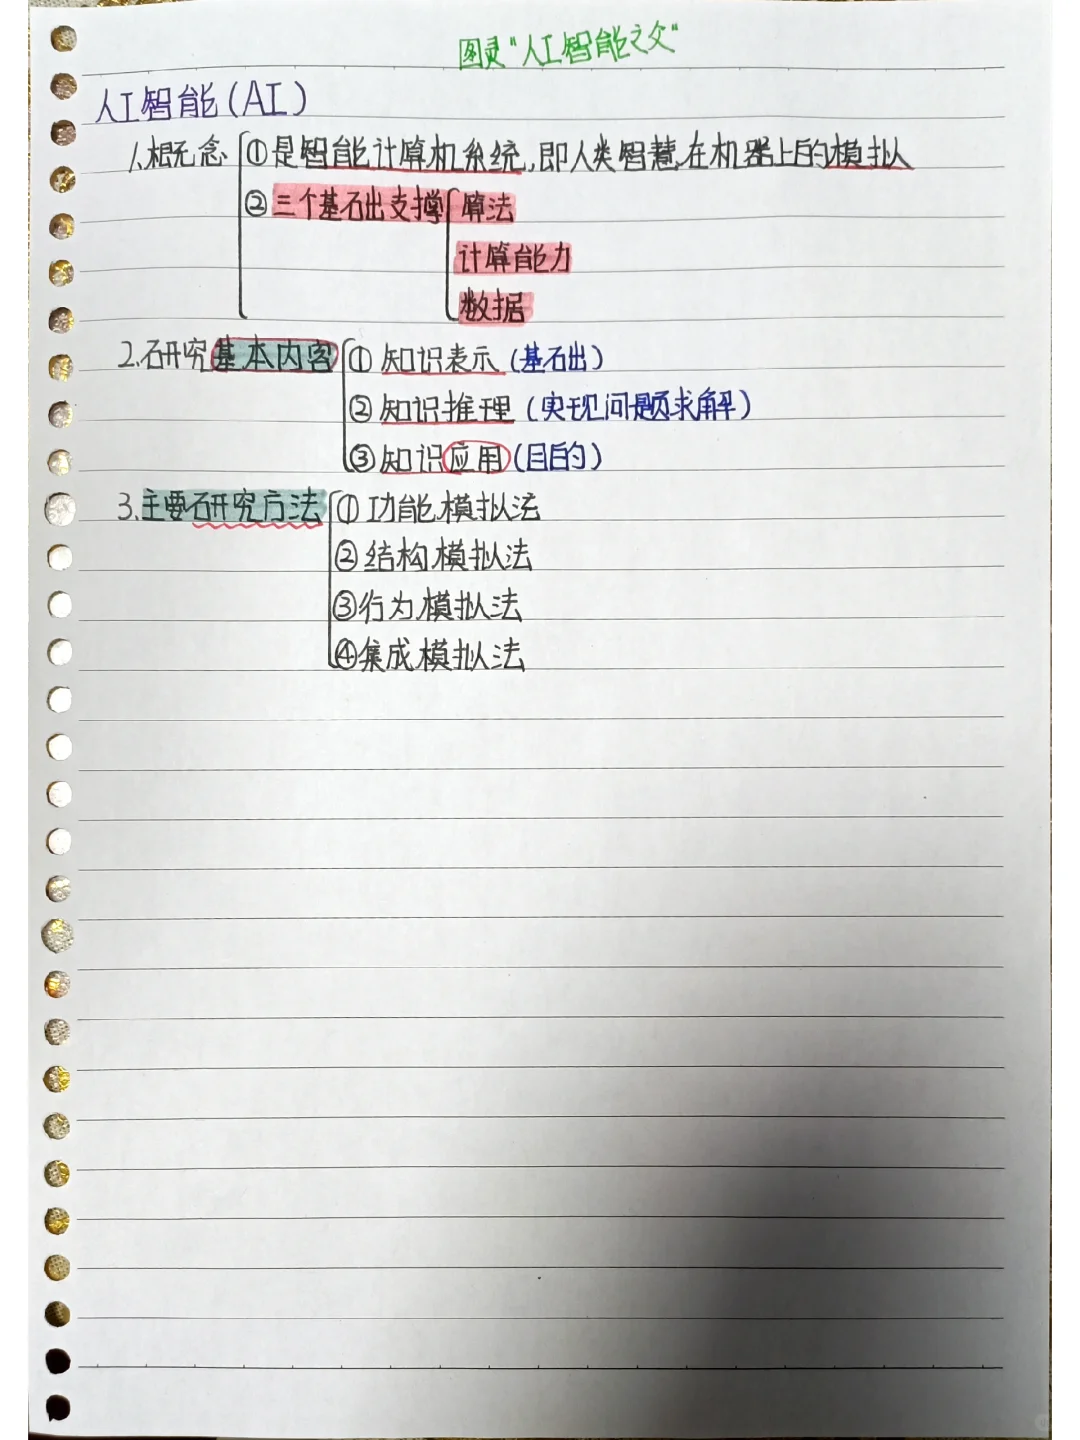 图灵"人工智能之父"
人工智能(AI)
1.概念 ①是智能计算机系统,即人类智慧在机器上的模拟
②三个基础支撑 算法
计算能力
数据
2.研究基本内容 ①知识表示(基础)
②知识推理(实现问题求解)
③知识应用(目的)
3.主要研究方法 ①功能模拟法
②结构模拟法
③行为模拟法
④集成模拟法